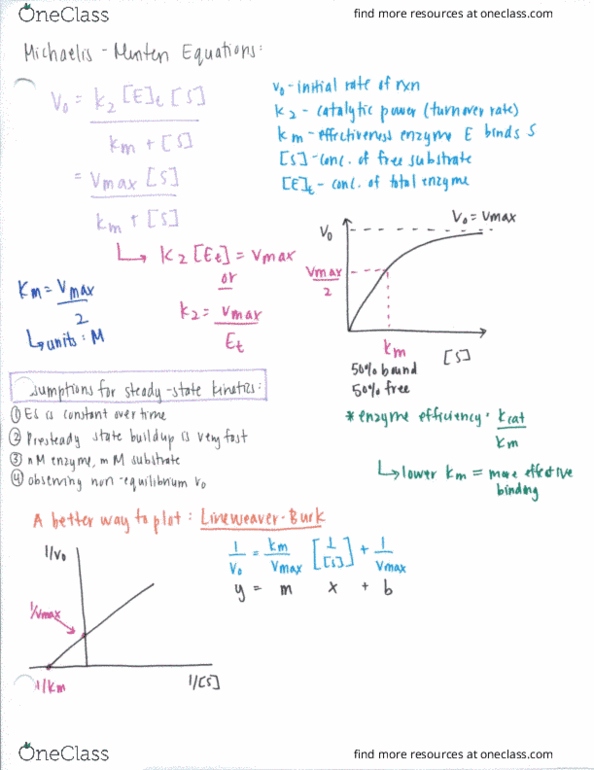 OneClass
find more resources at oneclass.com
Michaelis - Menten Equations:
V₀ = k₂ [E]t [S]
km + [S]
= Vmax [S]
km + [S]
↳ k₂ [Et] = Vmax
or
k₂ = Vmax
Et
Km = Vmax
2
↳ units: M
V₀ - initial rate of rxn
k₂ - catalytic power (turnover rate)
km - effectiveness enzyme E binds S
[S] - conc. of free substrate
[E]t - conc. of total enzyme
V₀
V₀ = Vmax
Vmax
2
km
[S]
50% bound
50% free
sumptions for steady-state kinetics:
① ES is constant over time
② Presteady state buildup is very fast
③ nM enzyme, mM substrate
④ observing non-equilibrium V₀
* enzyme efficiency · kcat
km
↳ lower km = more effective
binding
A better way to plot: Lineweaver-Burk
1/V₀
1/Vmax
1/km
1/[S]
1/V₀ = km/Vmax [1/[S]] + 1/Vmax
y = m x + b
OneClass
find more resources at oneclass.com